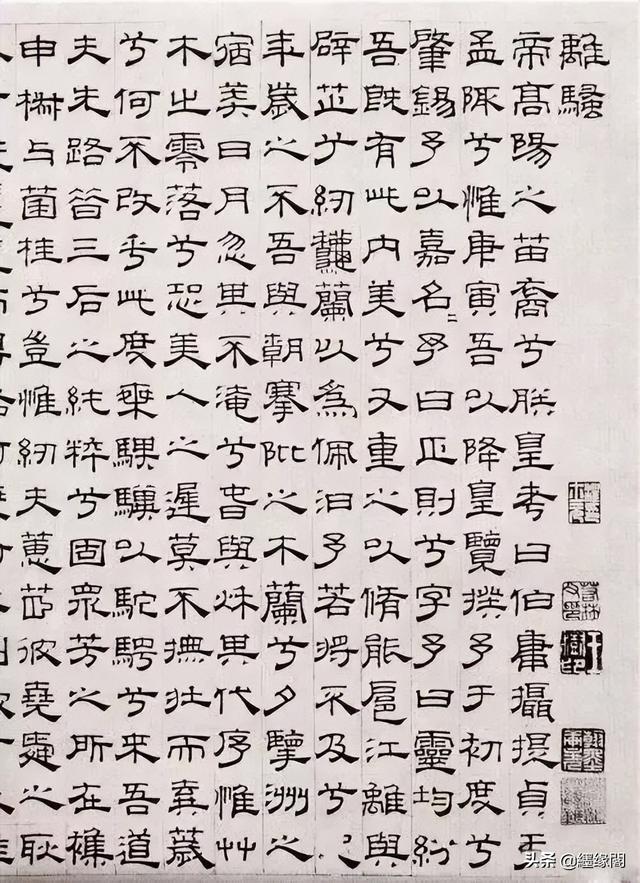 離騷
帝高陽之苗裔兮朕皇考曰伯庸攝提貞于
孟陬兮惟庚寅吾以降皇覽揆予于初度兮
肇錫予以嘉名二予曰正則兮字予曰靈均紛
吾既有此內美兮又重之以脩能扈江離與
辟芷兮紉龝蘭以為佩汩予若將不及兮
年歲之不吾與朝搴阰之木蘭兮夕擥洲之
宿莽日月忽其不淹兮春與秌其代序惟艸
木之零落兮恐美人之遲莫不撫壯而棄薉
兮何不改乎此度椉騏驥以駝騁兮來吾道
夫先路昔三后之純粹兮固眾芳之所在襍
申椒与菌桂兮豈惟紉夫蕙茝彼堯舜之耿
头条 @繮缘閣